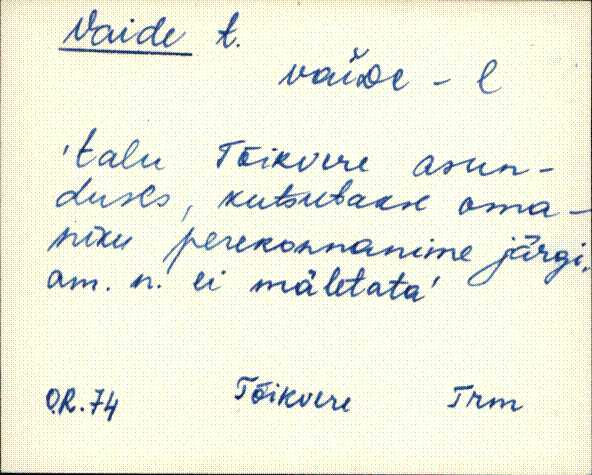 Vaide t.
vaiᴅe - l
'talu Tõikvere asun-
duses, kutsutakse oma-
niku perekonnanime järgi,
am. n. ei mäletata'
O.R. 74 Tõikvere Trm